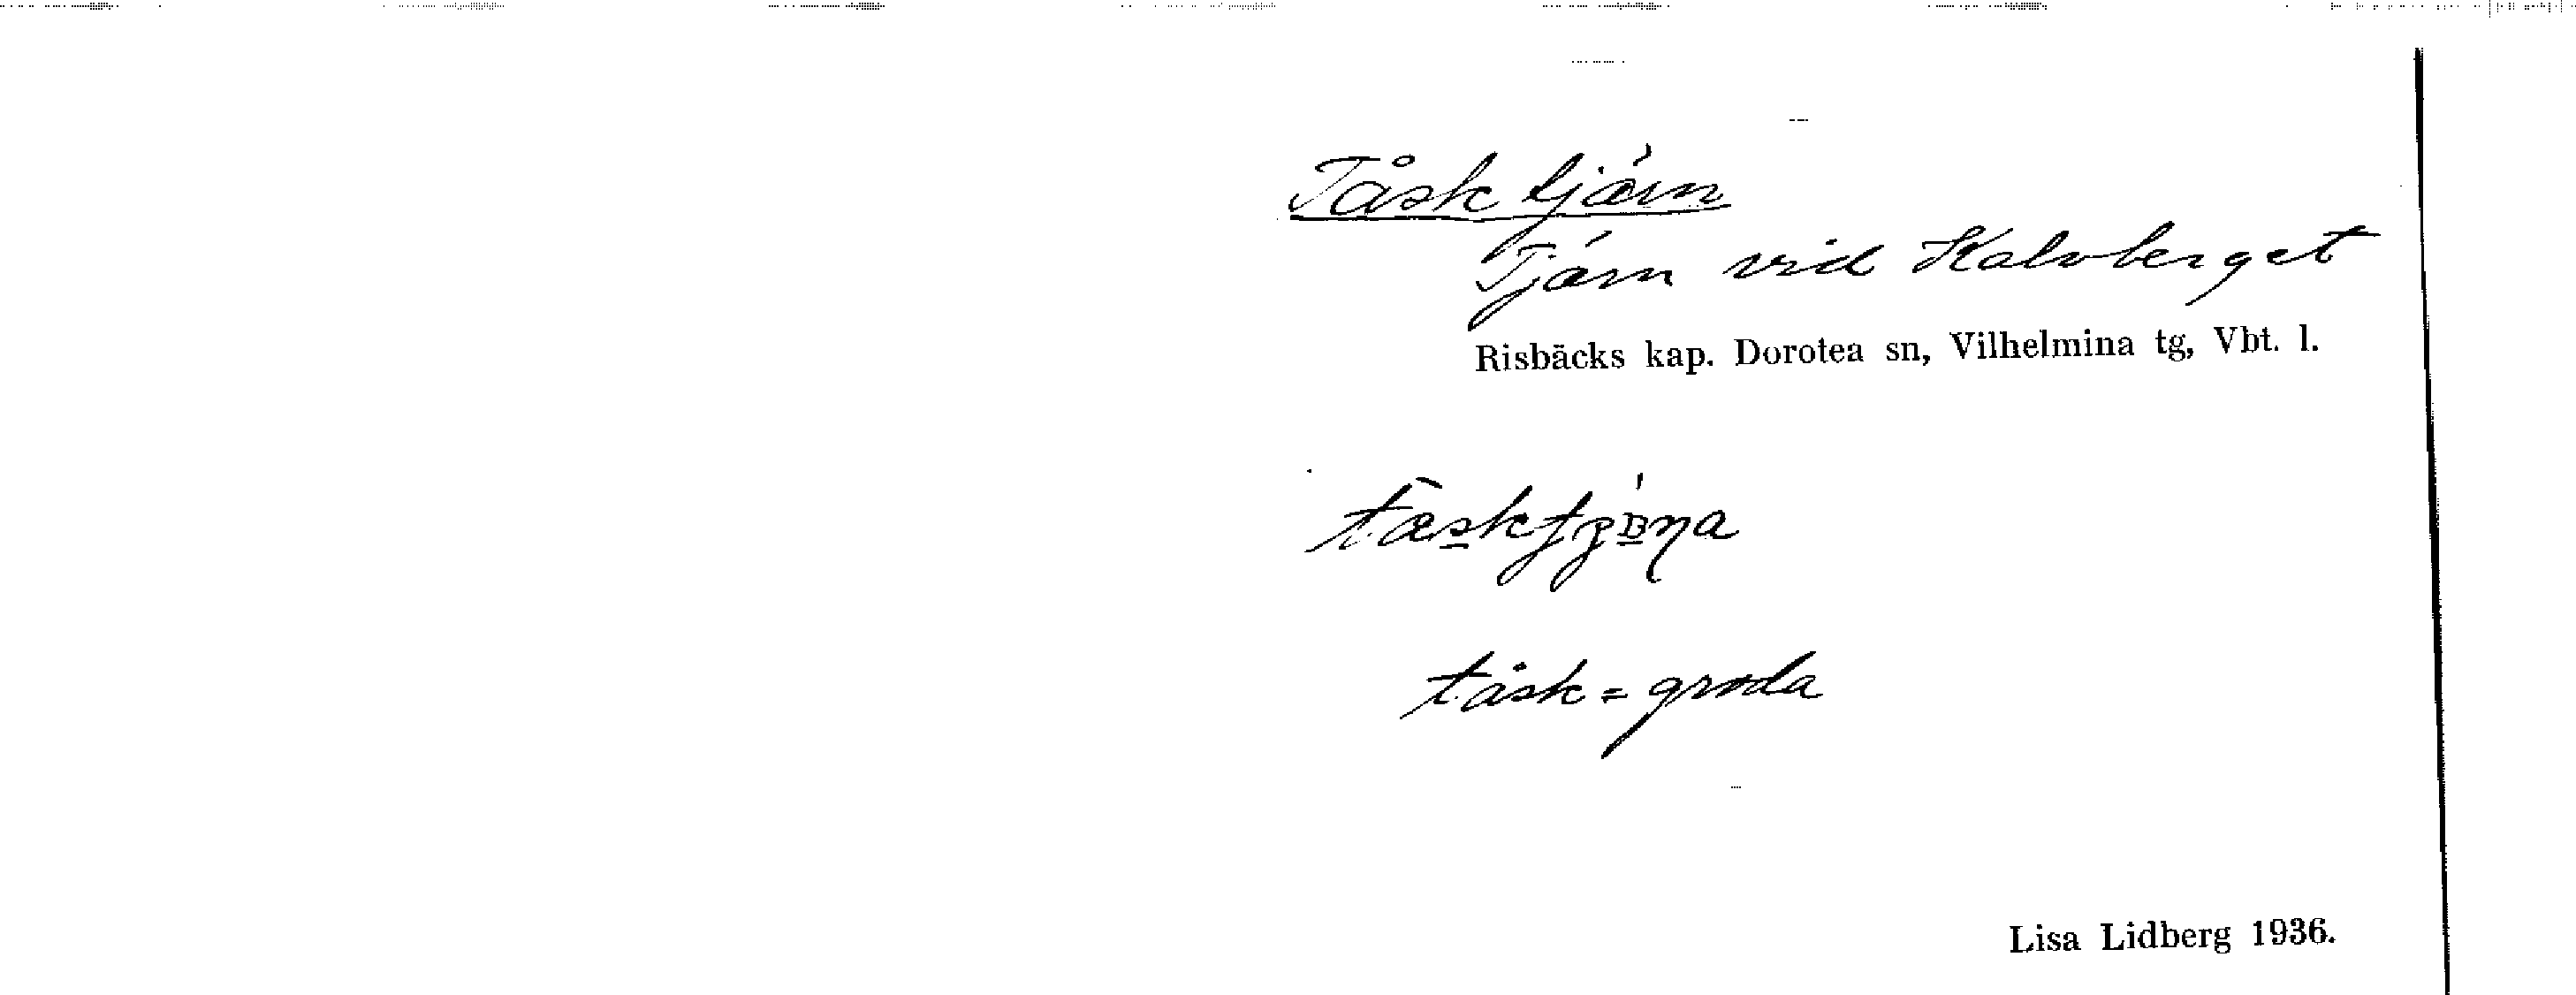 Tåsktjärn
Tjärn vid Kalvberget
Risbäcks kap. Dorotea sn, Vilhelmina tg, Vbt. l.
tåsk = groda
Lisa Lidberg 1936.